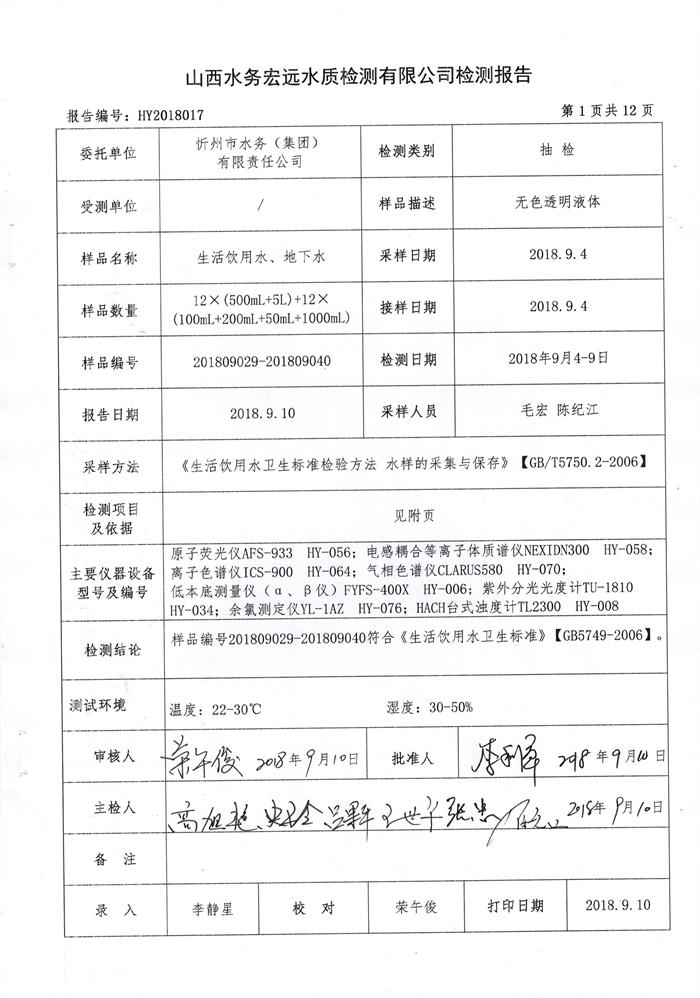 山西水务宏远水质检测有限公司检测报告
报告编号：HY2018017
第 1 页共 12 页
委托单位
忻州市水务（集团）
有限责任公司
检测类别
抽 检
受测单位
/
样品描述
无色透明液体
样品名称
生活饮用水、地下水
采样日期
2018.9.4
样品数量
12×(500mL+5L)+12×
(100mL+200mL+50mL+1000mL)
接样日期
2018.9.4
样品编号
201809029-201809040
检测日期
2018年9月4-9日
报告日期
2018.9.10
采样人员
毛宏 陈纪江
采样方法
《生活饮用水卫生标准检验方法 水样的采集与保存》【GB/T5750.2-2006】
检测项目
及依据
见附页
主要仪器设备
型号及编号
原子荧光仪AFS-933 HY-056；电感耦合等离子体质谱仪NEXIDN300 HY-058；
离子色谱仪ICS-900 HY-064；气相色谱仪CLARUS580 HY-070；
低本底测量仪（α、β仪）FYFS-400X HY-006；紫外分光光度计TU-1810
HY-034；余氯测定仪YL-1AZ HY-076；HACH台式浊度计TL2300 HY-008
检测结论
样品编号201809029-201809040符合《生活饮用水卫生标准》【GB5749-2006】。
测试环境
温度：22-30℃
湿度：30-50%
审核人
荣午俊 2018年9月10日
批准人
2018年9月10日
主检人
2018年9月10日
备 注
录 入
李静星
校 对
荣午俊
打印日期
2018.9.10